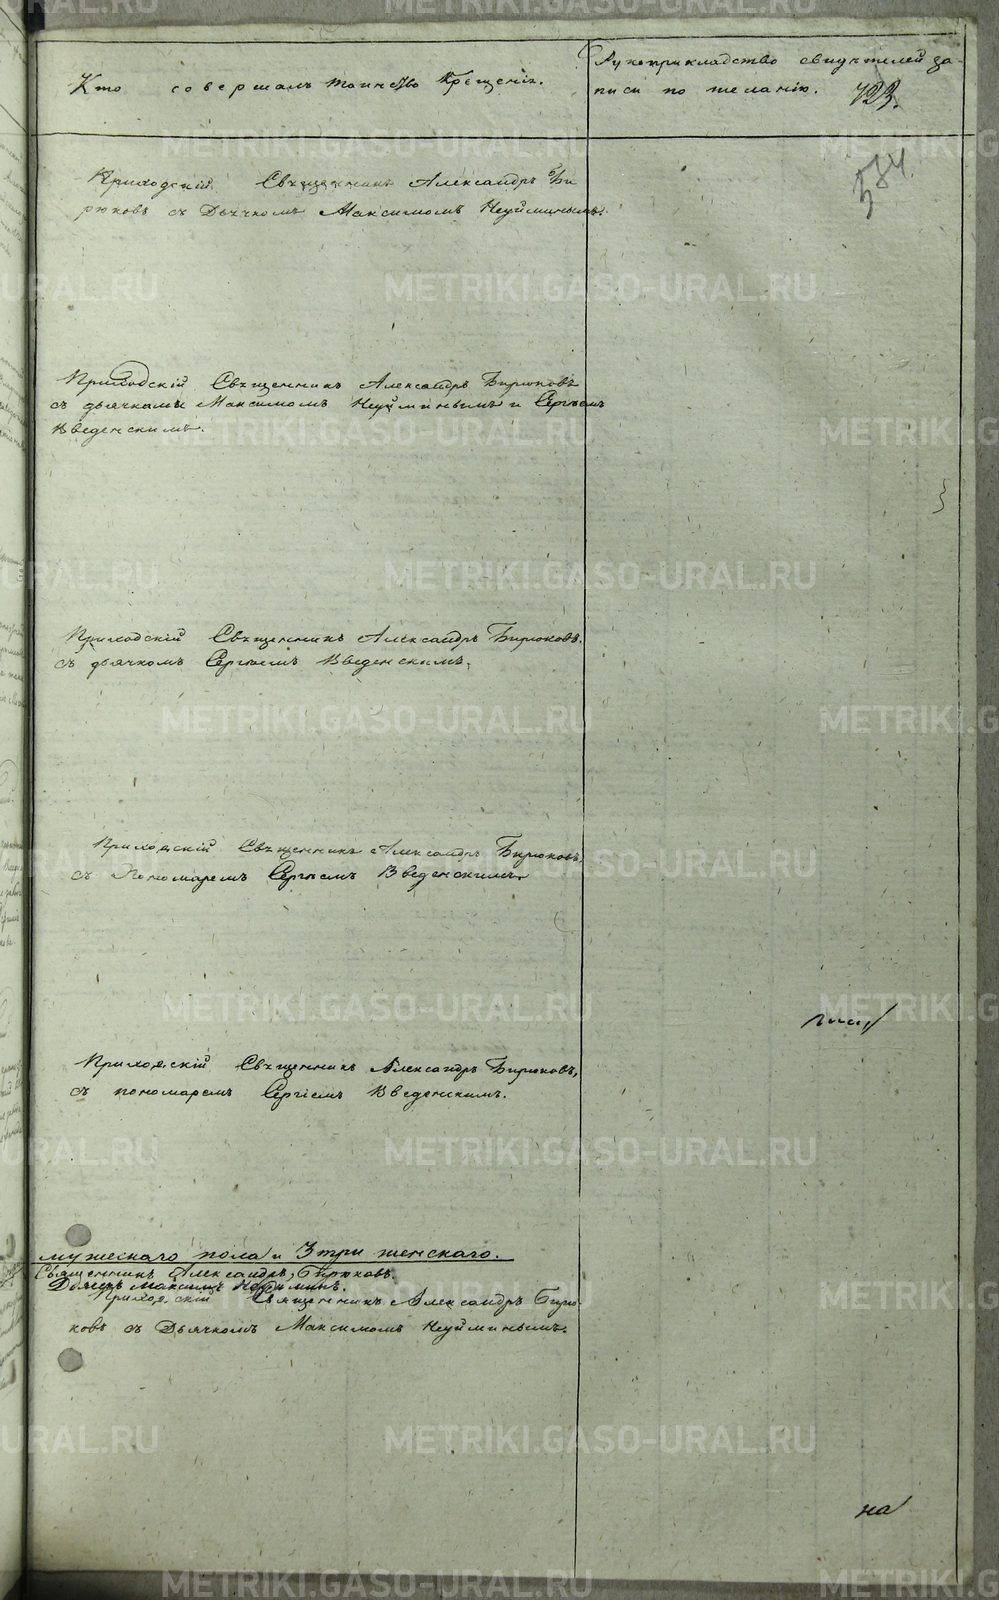 Кто совершалъ таинство Крещенія.
Рукоприкладство свидѣтелей за-
писи по желанію.
723.
584.
Приходскій Священникъ Александръ Би
рюковъ съ Дьячкомъ Максимомъ Неуйминымъ.
Приходскій Священникъ Александръ Бирюковъ
съ дьячками Максимомъ Неуйминымъ и Сергіемъ
Введенскимъ.
Приходскій Священникъ Александръ Бирюковъ.
съ дьячкомъ Сергіемъ Введенскимъ.
Приходскій Священникъ Александръ Бирюковъ,
съ Пономаремъ Сергіемъ Введенскимъ.
Приходскій Священникъ Александръ Бирюковъ,
съ пономаремъ Сергіемъ Введенскимъ.
мужескаго пола и 3 три женскаго.
Священникъ Александръ Бирюковъ.
Дьячекъ Максимъ Неуйминъ.
Приходскій Священникъ Александръ Бирю-
ковъ съ Дьячкомъ Максимомъ Неуйминымъ.
на
METRIKI.GASO-URAL.RU